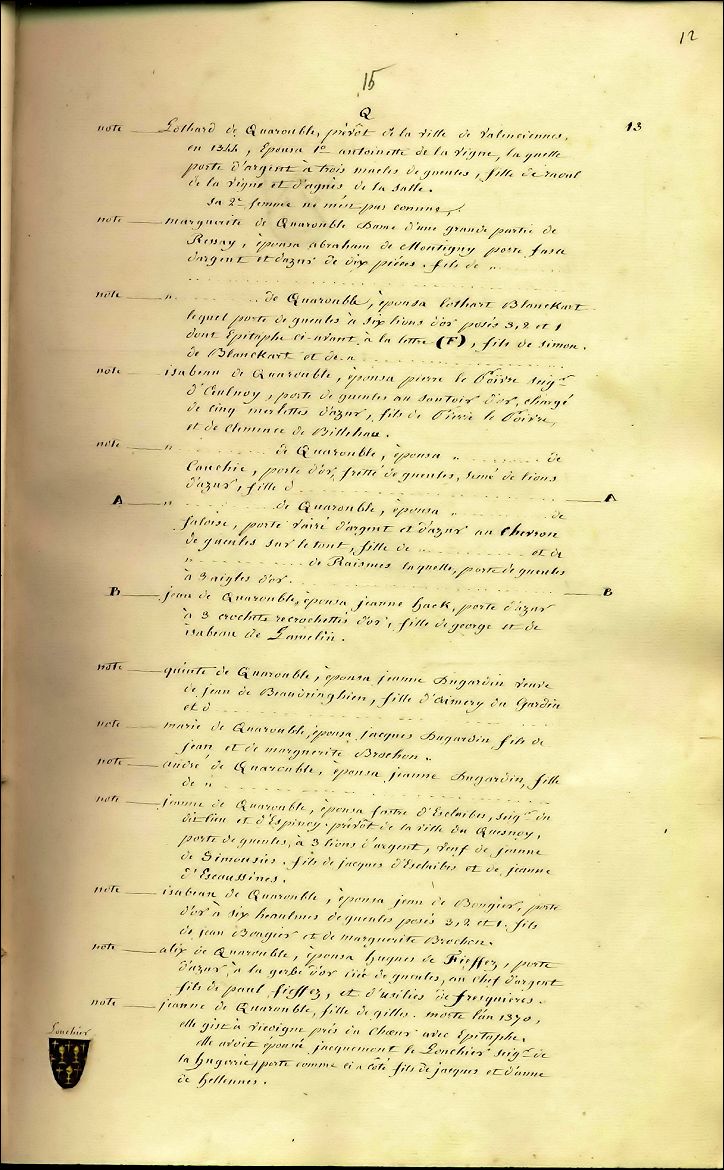 12
15
Q
13
note — Lothard de Quarouble, prévôt de la ville de valenciennes,
en 1344, Epousa 1º antoinette de la vigne, la quelle
porte d'argent à trois macles de gueules, fille de raoul
de la vigne et d'agnès de la salle.
sa 2e femme ne m'est pas connue.
note — marguerite de Quarouble Dame d'une grande partie de
, épousa abraham de Montigny porte fasce
d'argent et d'azur de dix pièces. fils de "
note — n. de Quarouble, épousa Lothart Blanckart
lequel porte de gueules à six lions d'or posés 3, 2 et 1
dont Epitaphe ci-avant, à la lettre (F), fils de simon
de Blanckart et de n
note — isabeau de Quarouble, épousa pierre le Poivre seigr
d'Eulnoy, porte de gueules au sautoir d'or, chargé
de cinq merlettes d'azur, fils de Pierre le Poivre,
et de Clemence de
note — n de Quarouble, épousa " de
Cauchie, porte d'or, fretté de gueules, semé de lions
d'azur, fille d
A — n de Quarouble, épousa " de — A
faloise, porte vairé d'argent et d'azur au chevron
de gueules sur le tout, fille de " et de
" de Raismes laquelle, porte de gueules
à 3 aigles d'or.
B — jean de Quarouble, épousa jeanne hack, porte d'azur — B
à 3 crochets recrochettés d'or, fille de george et de
isabeau de Lamelin.
note — quinte de Quarouble, épousa jeanne Dugardin veuve
de jean de Beaudringhien, fille d'aimery du Gardin
et d
note — marie de Quarouble, épousa jacques Dugardin fils de
jean et de marguerite Brochon.
note — andré de Quarouble, épousa jeanne Dugardin, fille
de n
note — jeanne de Quarouble, épousa fastré d'Esclaibes, seigr du
dit lieu et d'Espinoy. prévôt de la ville du Quesnoy,
porte de gueules, à 3 lions d'argent, veuf de jeanne
de Simousies. fils de jacques d'Esclaibes et de jeanne
d'Escaussines.
note — isabeau de Quarouble, épousa jean de Bougier, porte
d'or à six heaulmes de gueules posés 3, 2 et 1. fils
de jean Bougier et de marguerite Brochon.
note — alix de Quarouble, épousa hugues de Fieffez, porte
d'azur, à la gerbe d'or liée de gueules, au chef d'argent
fils de paul fieffez, et d' de fresquieres.
note — jeanne de Quarouble, fille de gilles. morte l'an 1370,
elle gist à vicoigne près du Chœur avec Epitaphe.
elle avoit épousé jacquemont le Louchier seigr de
la hugerrie, porte comme ci a côté fils de jacques et d'anne
de hellennes.
Louchier